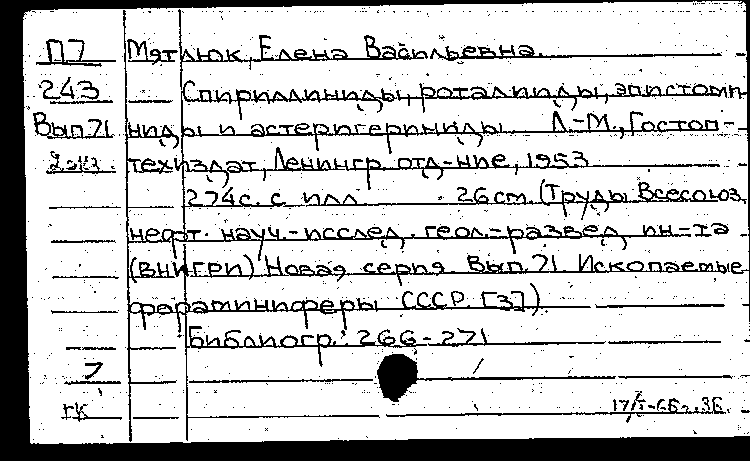 П7 Мятлюк, Елена Васильевна.
243 Спириллиниды, роталииды, эпистоми-
Вып.71 ниды и астеригериниды. Л.-М., Гостоп-
2 экз. техиздат, Ленингр. отд-ние, 1953
274с. с илл. 26 см. (Труды Всесоюз.
нефт. науч.-исслед. геол.-развед. ин-та
(ВНИГРИ) Новая серия Вып.71 Ископаемые
фораминиферы СССР. [3])
Библиогр.: 266-271
7
гк